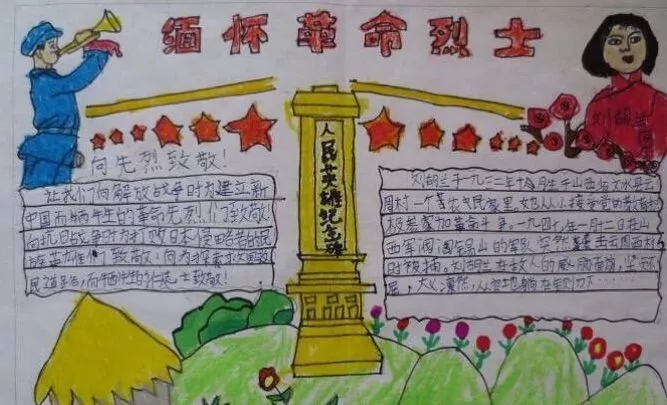 缅怀革命烈士
向先烈致敬！
让我们向解放战争时为建立新
中国而牺牲的革命先烈们致敬！
向抗日战争时为打败日本侵略者的民
族英雄们致敬！向为探索救国救
民道路而牺牲的仁人志士致敬！
人民英雄纪念碑
刘胡兰
刘胡兰于一九三二年十月生于山西省文水县云
周村一个贫农民家里，她从小接受党的教育
积极参加革命斗争。一九四七年一月十二日在山
西军阀阎锡山的军队突然袭击云周西村
时被捕。刘胡兰在敌人的威胁面前，坚贞不
屈，大义凛然，从容地躺在铡刀下……